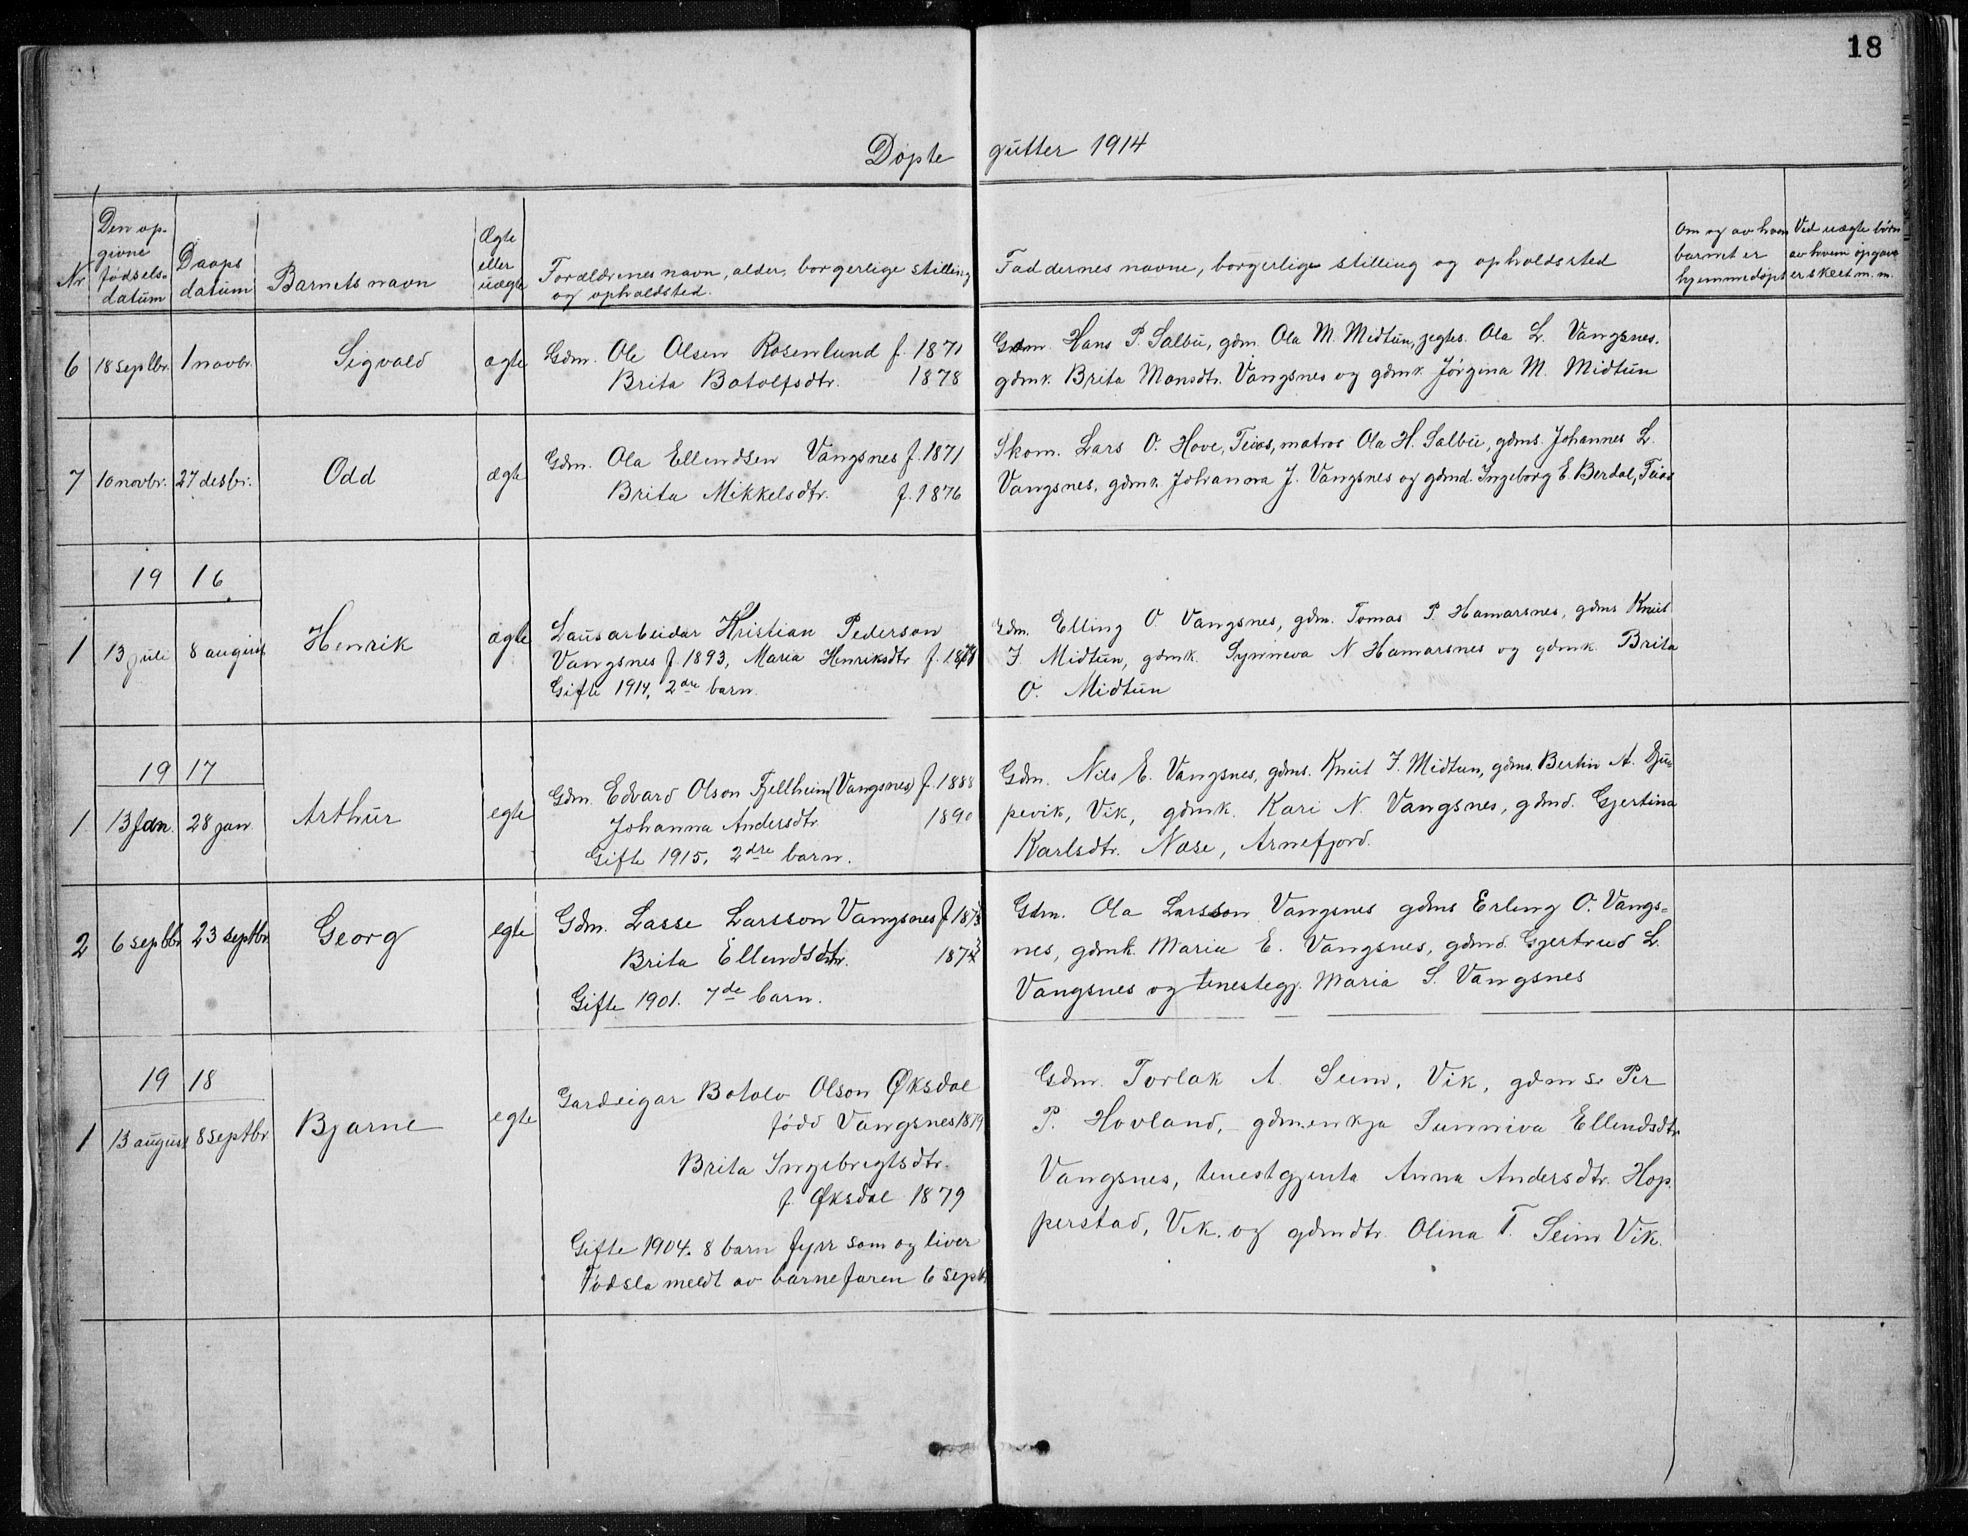 18
Døpte gutter 1914
Nr. Den op- givne fødsels- datum Daaps datum Barnets navn Ægte eller uægte Forældrenes navn, alder, borgerlige stilling og opholdsted. Faddernes navne, borgerlige stilling og opholdssted Om og av hvem barnet er hjemmedøpt Ved uægte børn av hvem opgave er skeet m. m.
6 18 septbr. 1 novbr. Sigvald ægte Gdm. Ole Olsen Rosenlund f. 1871
Brita Botolfsdtr. 1878
Gdm. Hans P. Salbu, gdm. Ola M. Midtun, jegtes. Ola L. Vangsnes.
gdmk. Brita Monsdtr. Vangsnes og gdmk. Jørgina M. Midtun
7 10 novbr. 27 desbr. Odd ægte Gdm. Ola Ellendsen Vangsnes f. 1871
Brita Mikkelsdtr. f. 1876
Skom. Lars O. Hove, Feios, matros Ola H. Salbu, gdms. Johannes L.
Vangsnes, gdmk. Johanna J. Vangsnes og gdmd. Ingeborg E. Berdal, Feios
19 16
1 13 juli 8 august Henrik ægte Lausarbeidar Kristian Pederson
Vangsnes f. 1893, Maria Henriksdtr f.
Gifte 1914, 2dre barn.
Gdm. Elling O. Vangsnes, gdm. Tomas P. Hamarsnes, gdms Knut
J. Midtun, gdmk. Synneva N Hamarsnes og gdmk. Brita
O. Midtun
19 17
1 13 jan. 28 jan. Arthur egte Gdm. Edvard Olson Fjellheim (Vangsnes) f. 1888
Johanna Andersdtr. 1890
Gifte 1915. 2dre barn.
Gdm. Nils E. Vangsnes, gdms. Knut J. Midtun, gdms. Bertin A. Dju-
pevik, Vik, gdmk. Kari N. Vangsnes, gdmd. Gjertina
Karlsdtr. Nase, Arnefjord.
2 6 septbr. 23 septbr. Georg egte Gdm. Lasse Larsson Vangsnes f.
Brita Ellendsdtr.
Gifte 1901. 7de barn.
Gdm. Ola Larsson Vangsnes gdms Erling O. Vangs-
nes, gdmk. Maria E. Vangsnes, gdmd. Gjertrud L.
Vangsnes og tenestegj. Maria S. Vangsnes
19 18
1 13 august 8 septbr Bjarne egte Gardeigar Botolv Olson Øksdal
fødd Vangsnes 1879
Brita Ingebrigtsdtr.
f. Øksdal 1879
Gifte 1904. 8 barn fyrr som og liver
Fødsla meldt av barnefaren 6 septbr
Gdm. Torlak A. Seim, Vik, gdms. Per
P. Hovland, gdmenkja Sunniva Ellendsdtr
Vangsnes, tenestgjenta Anna Andersdtr. Hop-
perstad, Vik. og gdmdtr. Olina T. Seim Vik.